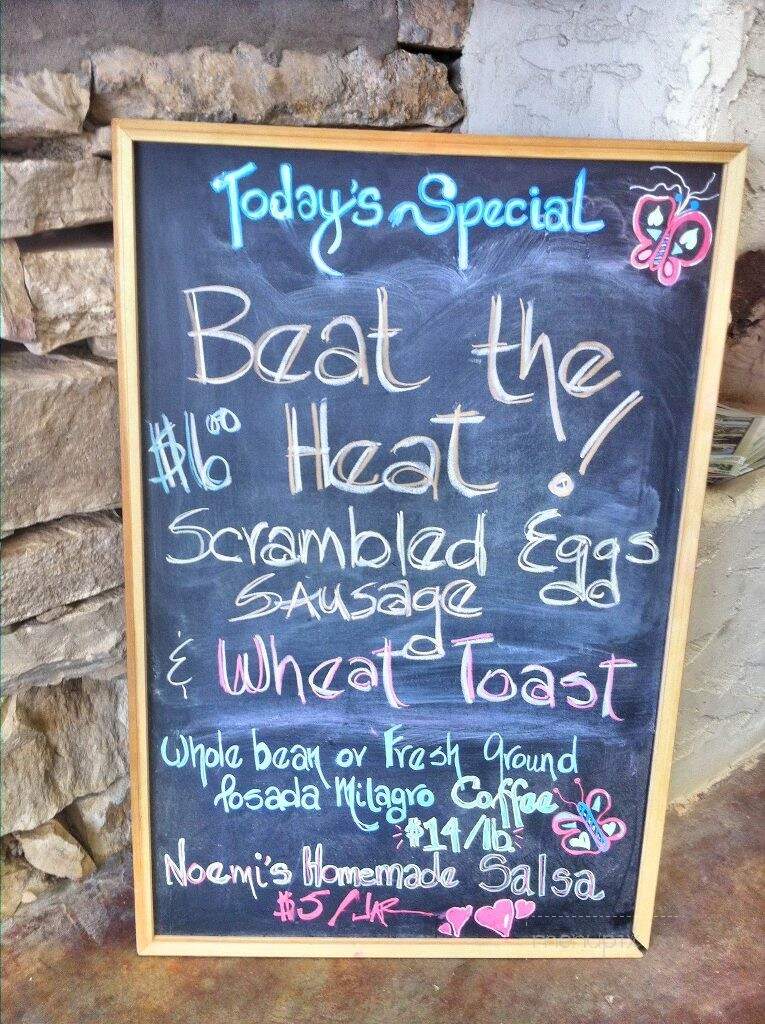 Today's Special
Beat the
$6.00 Heat!
Scrambled Eggs
Sausage
& Wheat Toast
Whole bean or Fresh ground
Posada Milagro Coffee
$14/lb
Noemi's Homemade Salsa
$5/JAR
menupix